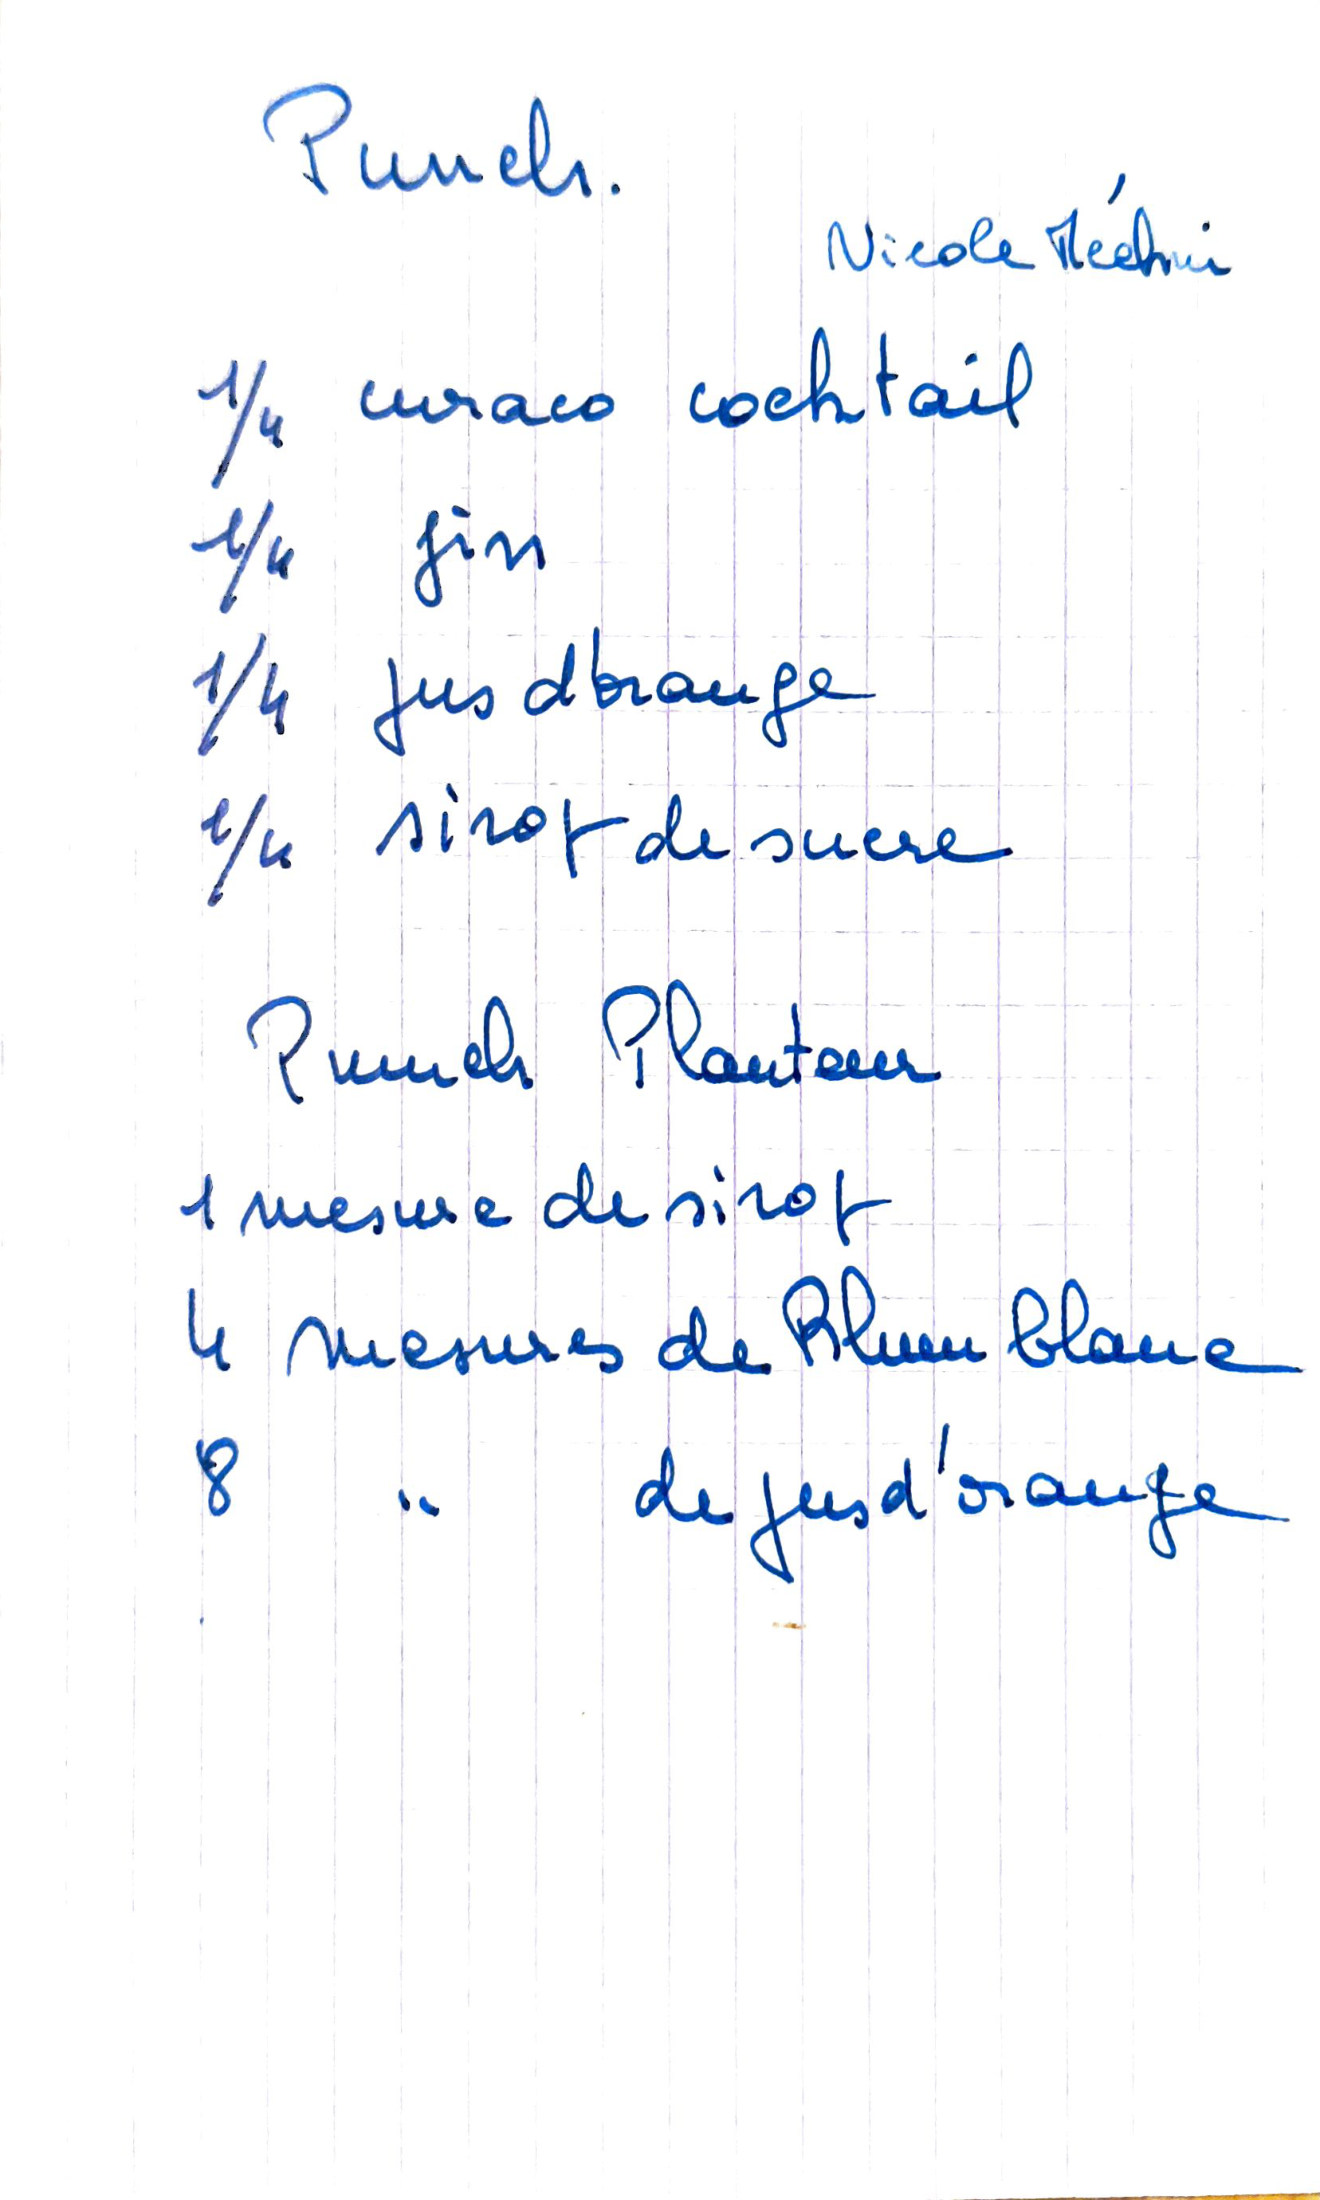 Punch.
Nicole
1/4 curaco cocktail
1/4 gin
1/4 jus d'orange
1/4 sirop de sucre
Punch Planteur
1 mesure de sirop
4 mesures de Rhum blanc
8 " de jus d'orange